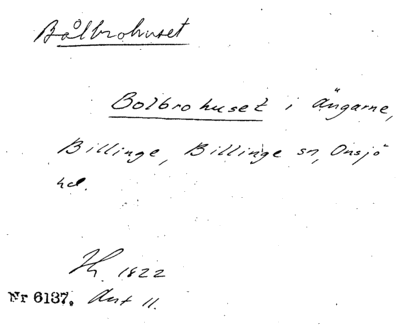 Bålbrohuset
Bolbrohuset i Ängarne,
Billinge, Billinge sn, Onsjö
hd.
1822
Nr 6137. Akt 11.